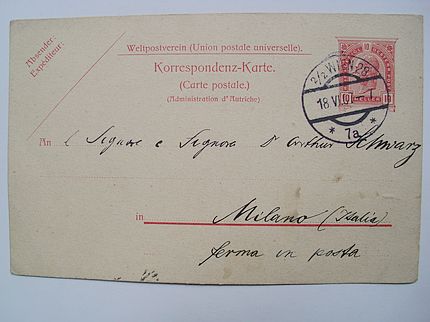 Absender:
Expéditeur:
Weltpostverein (Union postale universelle).
Korrespondenz-Karte.
(Carte postale.)
(Administration d'Autriche)
10 10
10 HELLER 10
2/2 WIEN 28
18 VI 01
* 7a *
An Signore e Signora Dr Arthur Schwarz
in Milano (Italia)
ferma in posta